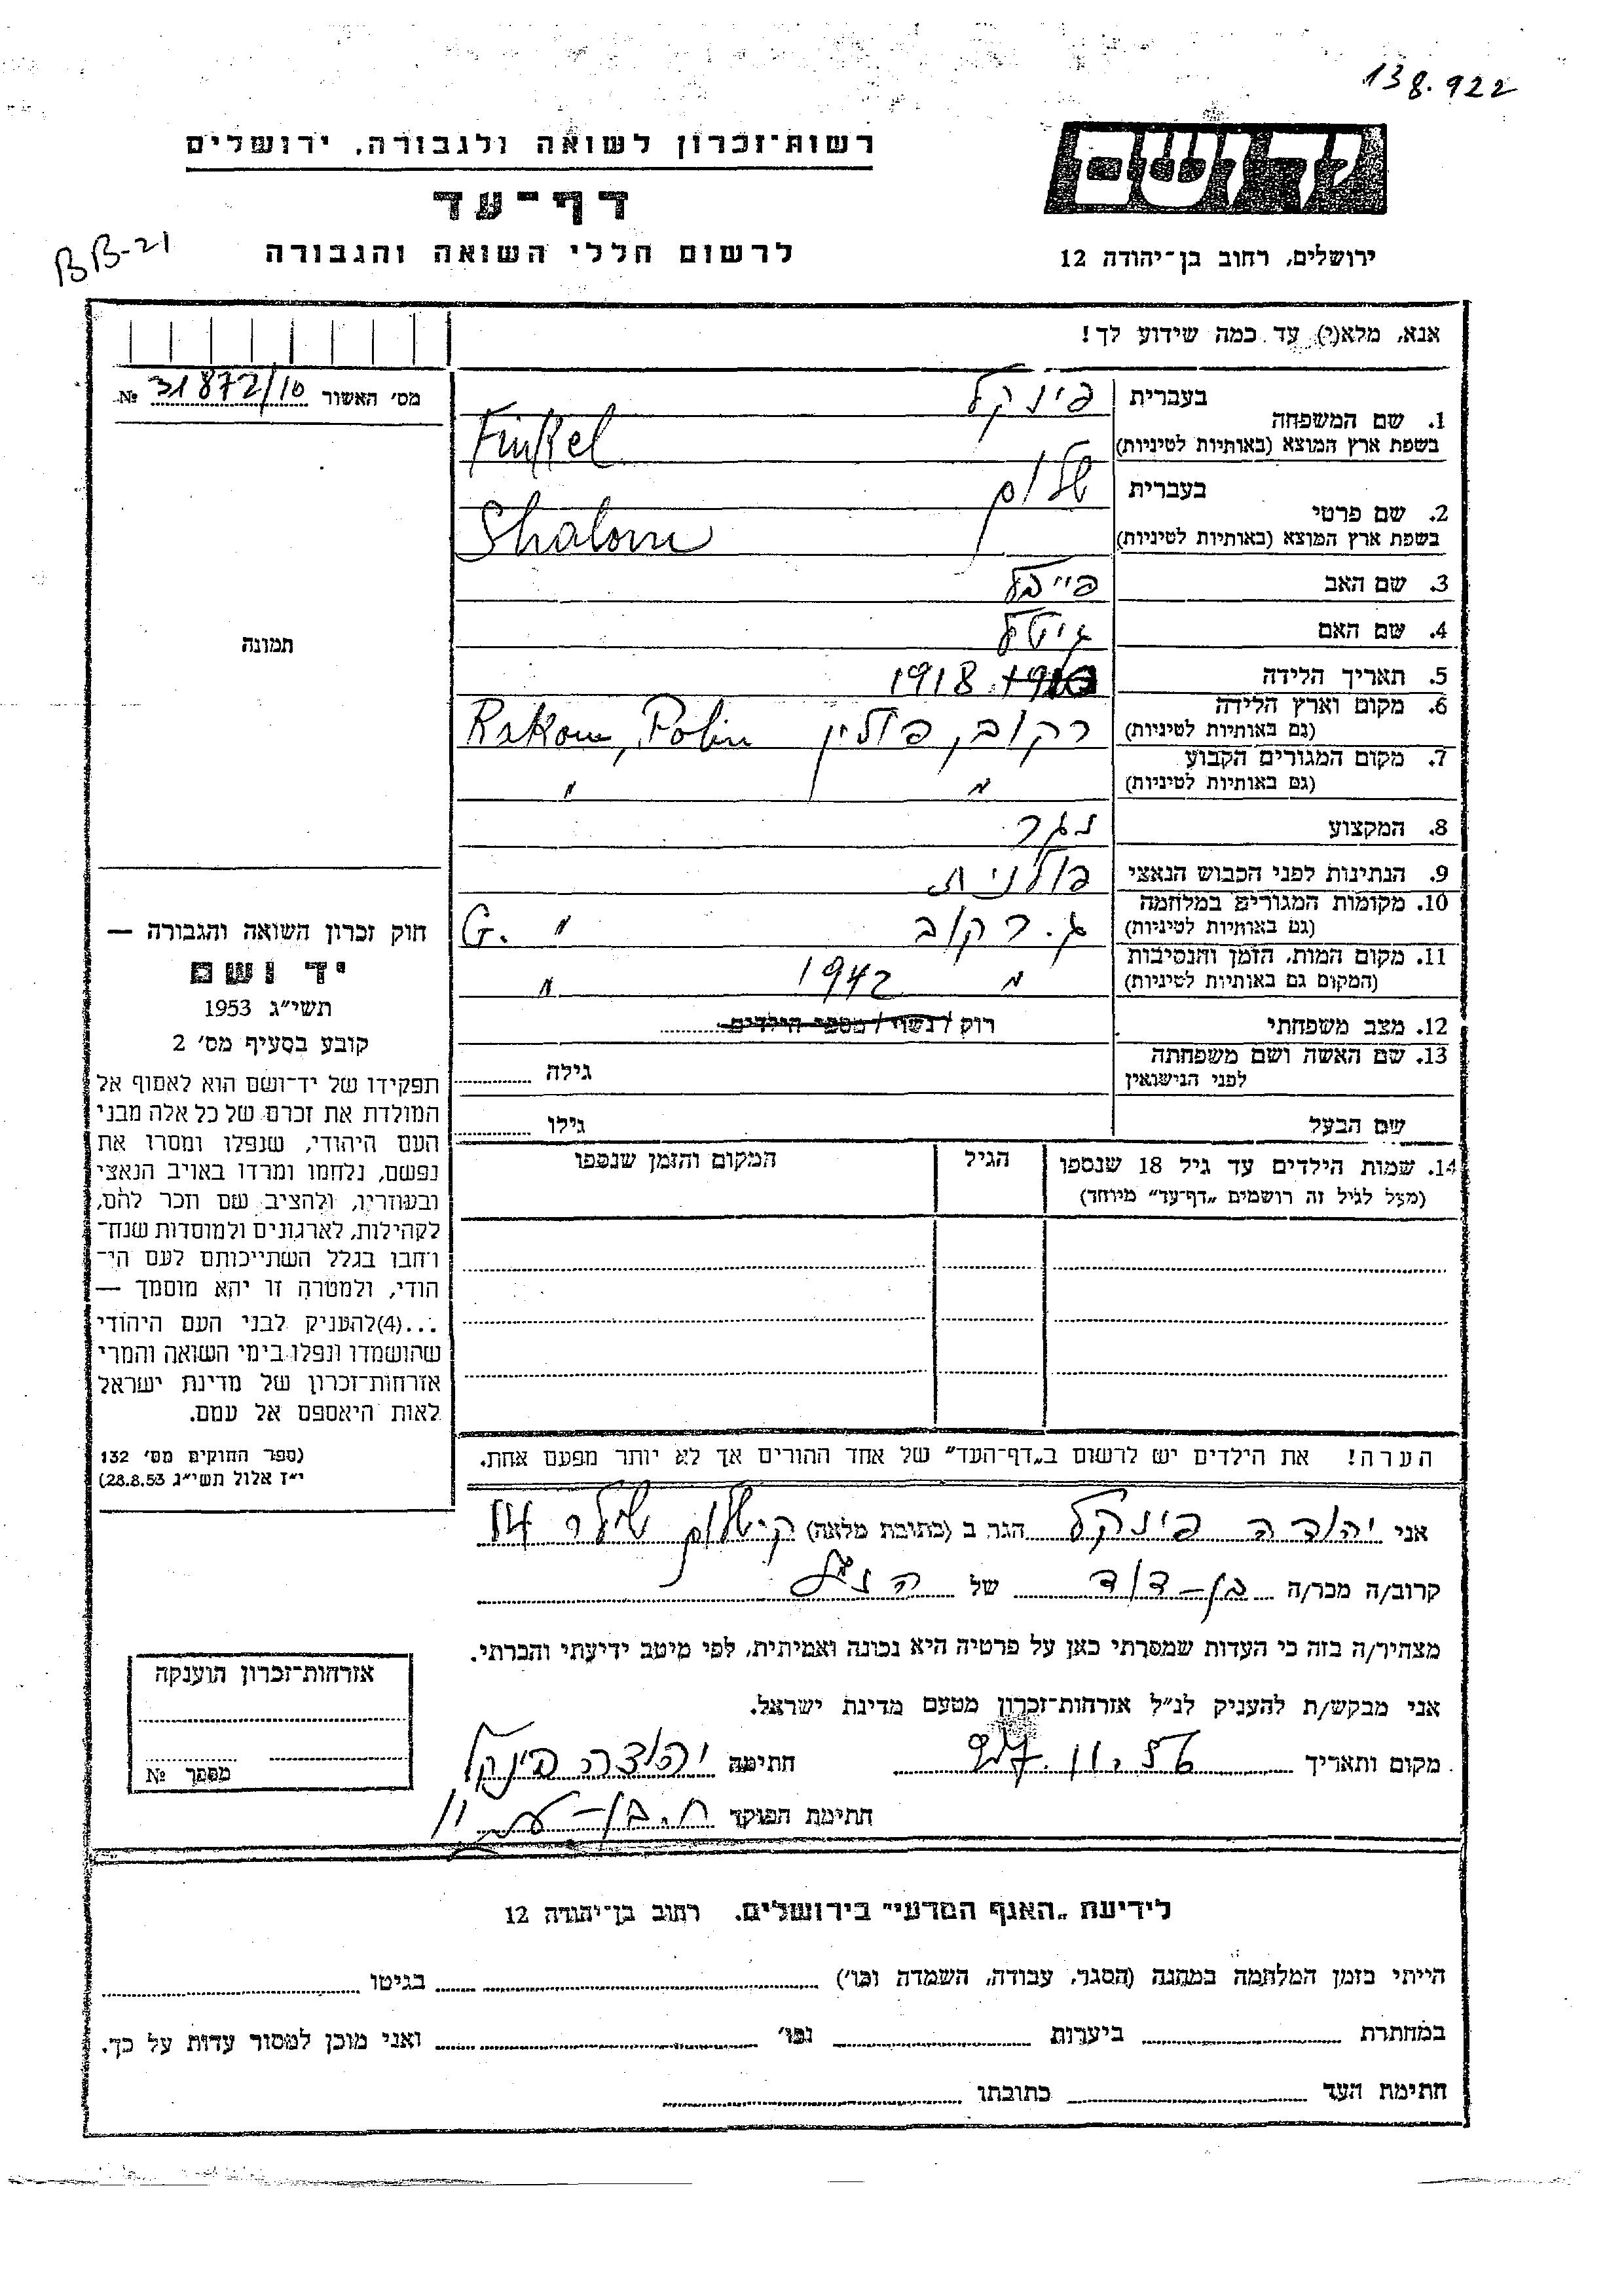 138.922
יד ושם
רשות־זכרון לשואה ולגבורה, ירושלים
דף־עד
BB-21
לרשום חללי השואה והגבורה
ירושלים, רחוב בן־יהודה 12
אנא, מלא(י) עד כמה שידוע לך!
מס׳ האשור 31872/10 №
1. שם המשפחה
בעברית פינקל
בשפת ארץ המוצא (באותיות לטיניות) Finkel
2. שם פרטי
בעברית שלום
בשפת ארץ המוצא (באותיות לטיניות) Shalom
3. שם האב פייבל
4. שם האם גיטל
5. תאריך הלידה 1918
6. מקום וארץ הלידה
(גם באותיות לטיניות) רקוב, פולין Rakow, Polin
7. מקום המגורים הקבוע
(גם באותיות לטיניות) " "
8. המקצוע נגר
9. הנתינות לפני הכבוש הנאצי פולנית
10. מקומות המגורים במלחמה
(גם באותיות לטיניות) ג. רקוב " G.
11. מקום המות, הזמן והנסיבות
(המקום גם באותיות לטיניות) " 1942 "
12. מצב משפחתי רווק / נשוי / מספר הילדים
13. שם האשה ושם משפחתה
לפני הנישואין גילה
שם הבעל גילו
14. שמות הילדים עד גיל 18 שנספו הגיל המקום והזמן שנספו
(מעל לגיל זה רושמים „דף־עד” מיוחד)
הערה! את הילדים יש לרשום ב„דף־העד” של אחד ההורים אך לא יותר מפעם אחת.
תמונה
חוק זכרון השואה והגבורה —
יד ושם
תשי״ג 1953
קובע בסעיף מס׳ 2
תפקידו של יד־ושם הוא לאסוף אל
המולדת את זכרם של כל אלה מבני
העם היהודי, שנפלו ומסרו את
נפשם, נלחמו ומרדו באויב הנאצי
ובעוזריו, ולהציב שם וזכר להם,
לקהילות, לארגונים ולמוסדות שנח־
רחבו בגלל השתייכותם לעם הי־
הודי, ולמטרה זו יהא מוסמך —
...(4)להעניק לבני העם היהודי
שהושמדו ונפלו בימי השואה והמרי
אזרחות־זכרון של מדינת ישראל
לאות היאספם אל עמם.
(ספר החוקים מס׳ 132
י״ז אלול תשי״ג 28.8.53)
אני יהודה פינקל הגר ב (כתובת מלאה)
קרוב/ה מכר/ה בן-דוד של הנ"ל
מצהיר/ה בזה כי העדות שמסרתי כאן על פרטיה היא נכונה ואמיתית, לפי מיטב ידיעתי והכרתי.
אני מבקש/ת להעניק לנ״ל אזרחות־זכרון מטעם מדינת ישראל.
מקום ותאריך חתימה יהודה פינקל
חתימת הפוקד
אזרחות־זכרון הוענקה
מספר №
לידיעת „האגף המדעי” בירושלים. רחוב בן־יהודה 12
הייתי בזמן המלחמה במחנה (הסגר, עבודה, השמדה וכו׳) בגיטו
במחתרת ביערות וכו׳ ואני מוכן למסור עדות על כך.
חתימת העד כתובתו